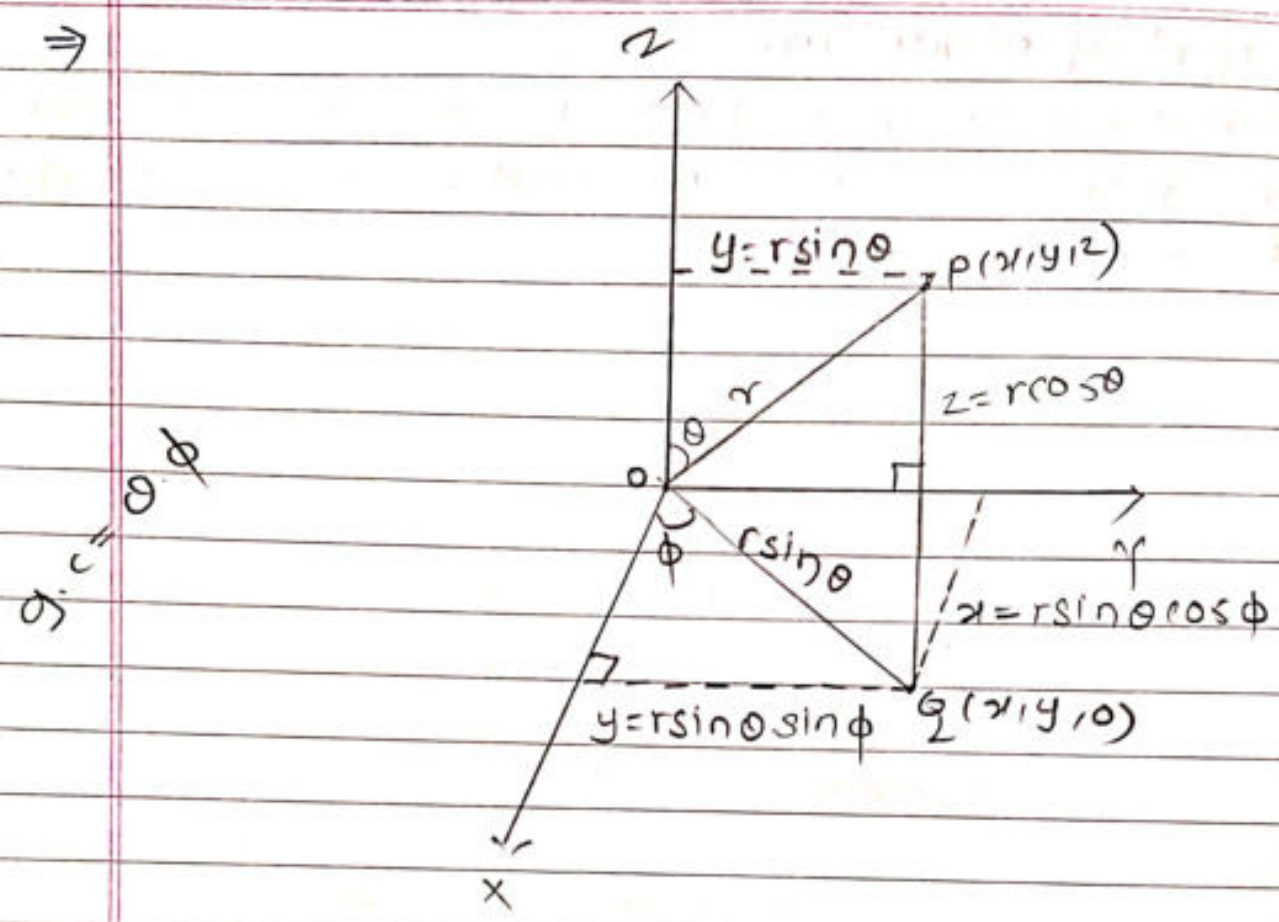 ⇒
Z
y=rsinθ
P(x,y,z)
r
z=rcosθ
θ
O
φ
rsinθ
Y
x=rsinθcosφ
y=rsinθsinφ
Q(x,y,0)
X
θ φ